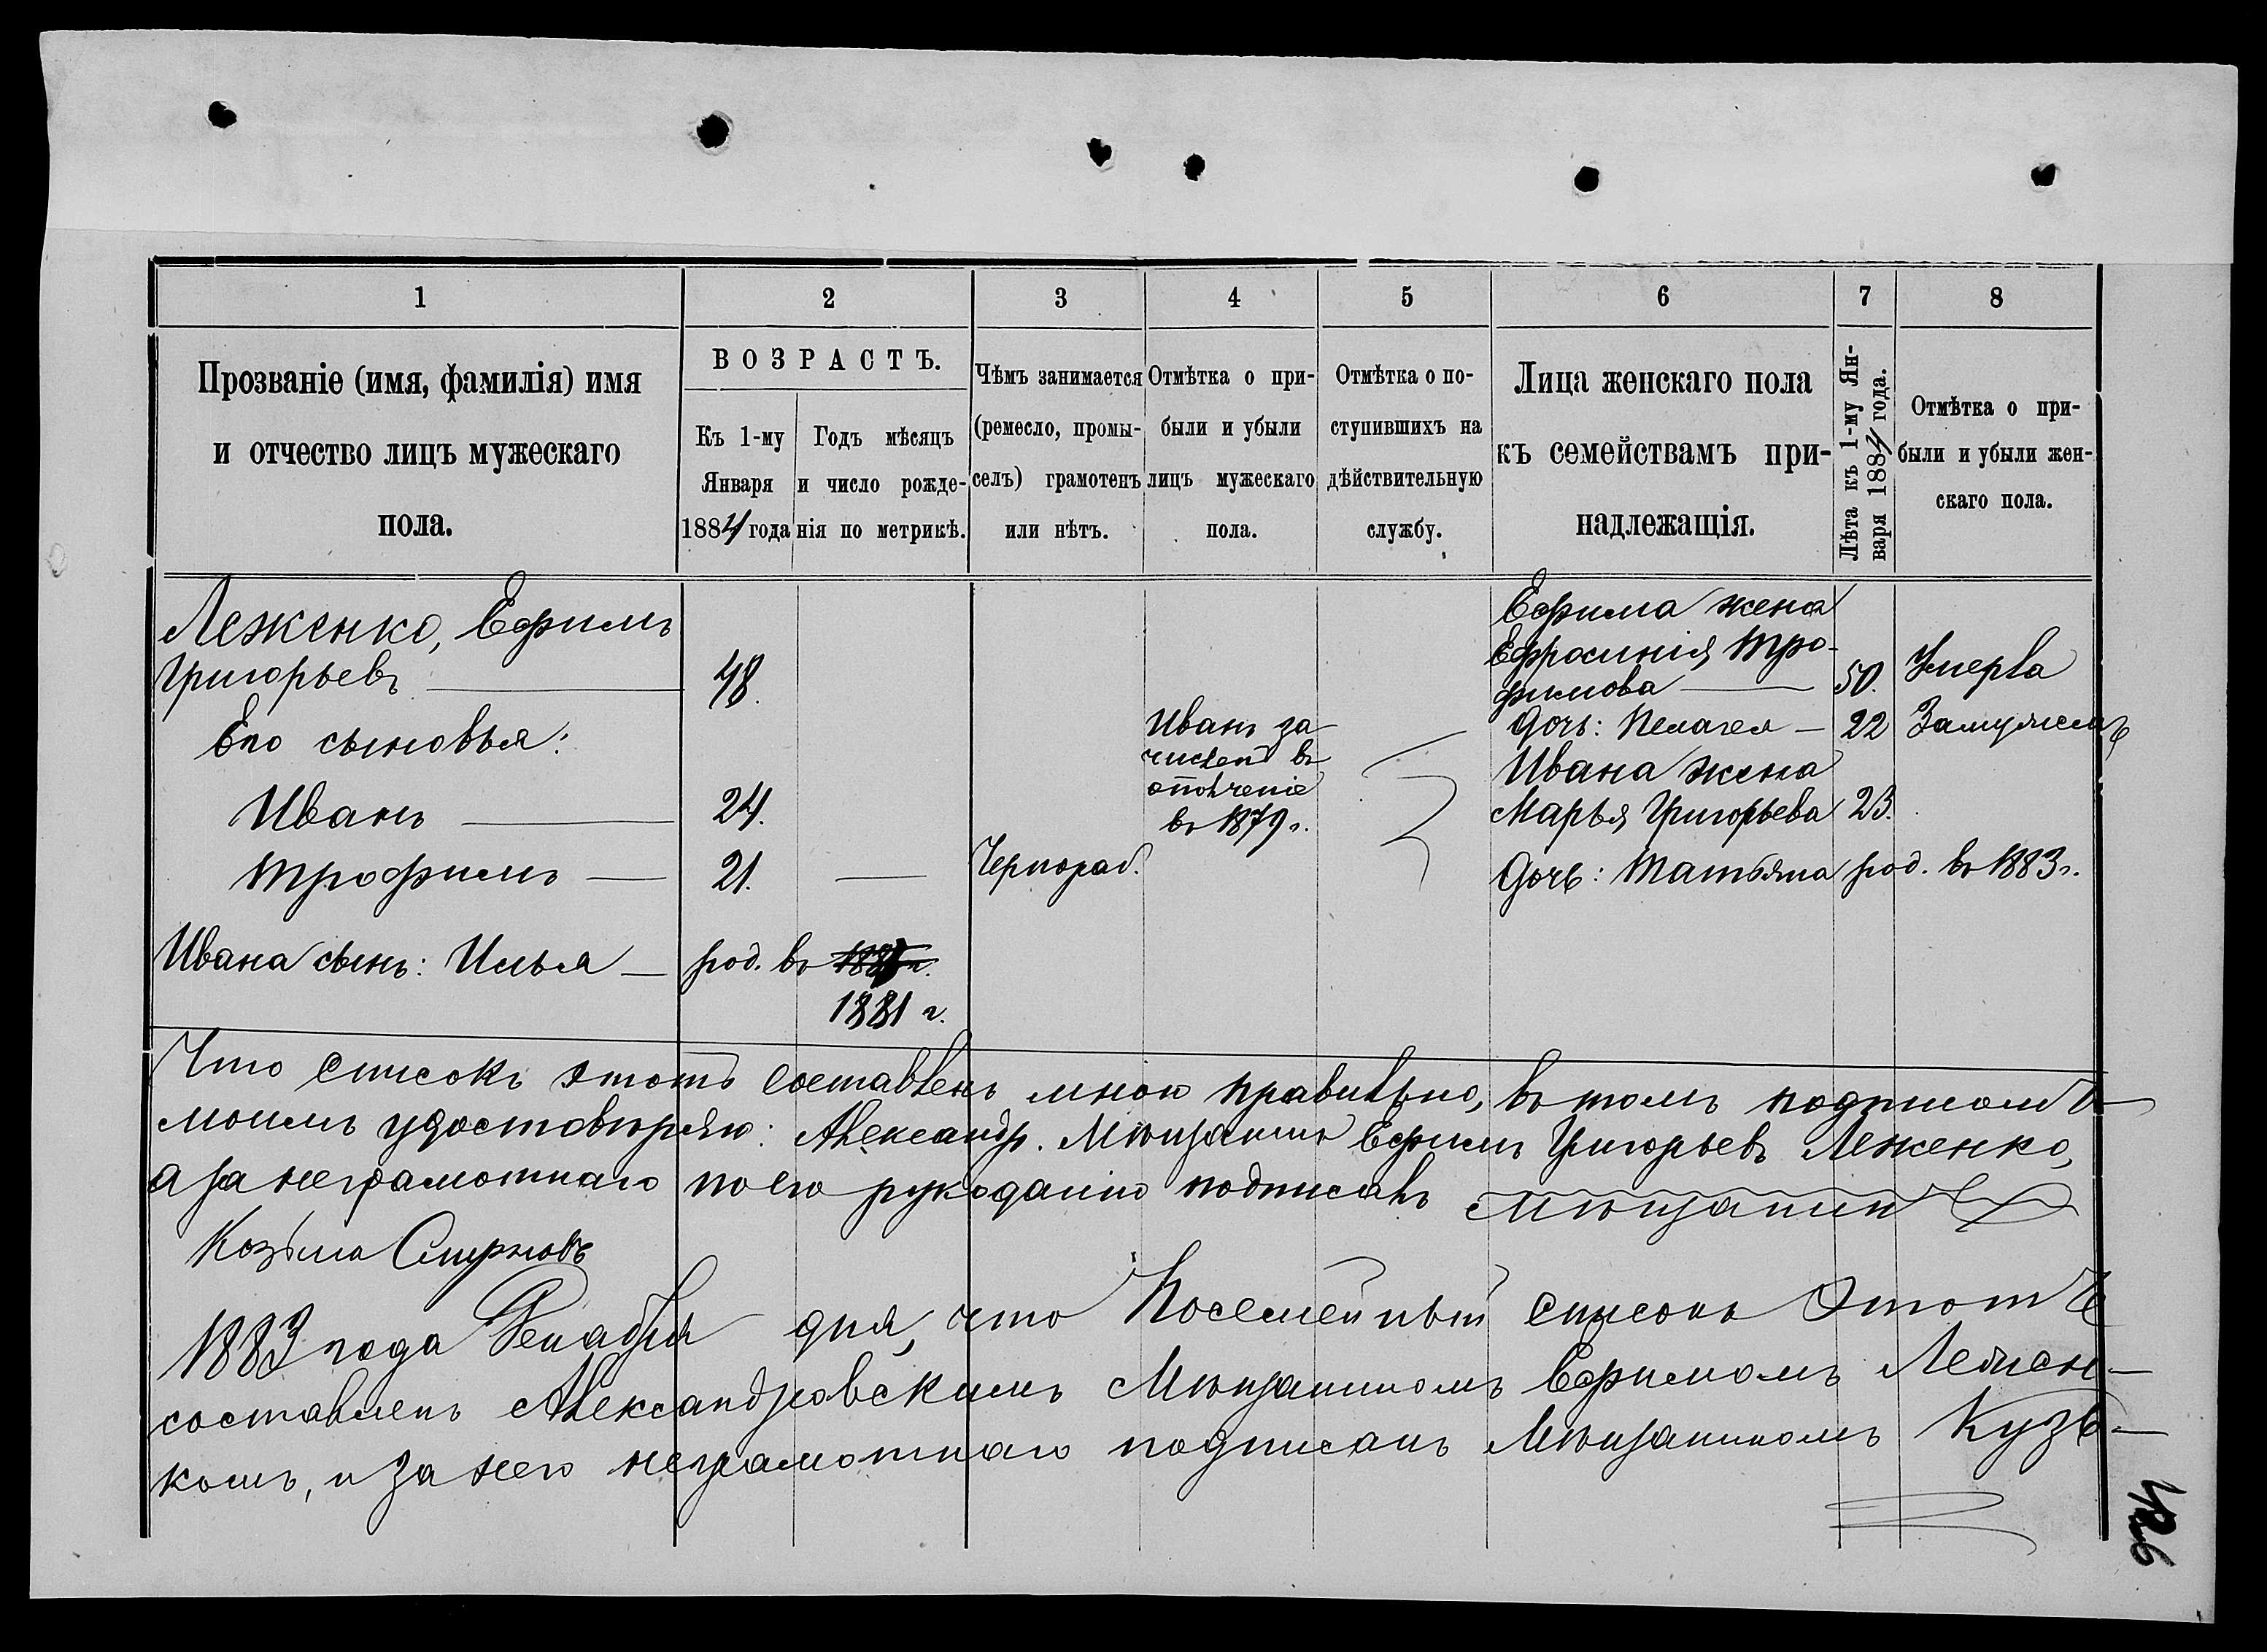 1 2 3 4 5 6 7 8
Прозваніе (имя, фамилія) имя
и отчество лицъ мужескаго
пола.
ВОЗРАСТЪ.
Къ 1-му
Января
1884 года
Годъ мѣсяцъ
и число рожде-
нія по метрикѣ.
Чѣмъ занимается
(ремесло, промы-
селъ) грамотенъ
или нѣтъ.
Отмѣтка о при-
были и убыли
лицъ мужескаго
пола.
Отмѣтка о по-
ступившихъ на
дѣйствительную
службу.
Лица женскаго пола
къ семействамъ при-
надлежащія.
Лѣта къ 1-му Ян-
варя 1884 года.
Отмѣтка о при-
были и убыли жен-
скаго пола.
Леженко, Ефимъ
Григорьевъ — 48.
Его сыновья:
Иванъ — 24.
Трофимъ — 21. —
Ивана сынъ: Илья — род. въ
1881 г.
Чернораб.
Иванъ за-
численъ въ
ополченіе
въ 1879 г.
Ефима жена
Ефросинія Тро-
фимова — 50. Умерла
Дочь: Пелагея — 22 Замужемъ
Ивана жена
Марья Григорьева 23.
Дочь: Татьяна род. въ 1883 г.
Что списокъ этотъ составленъ мною правильно, въ томъ подписомъ
моимъ удостовѣряю: Александр. Мѣщанинъ Ефимъ Григорьевъ Леженко,
а за неграмотнаго по его рукоданію подписалъ Мѣщанинъ
Козьма Смирновъ
1883 года Декабря дня, что Посемейный списокъ этотъ
составленъ Александровскимъ Мѣщаниномъ Ефимомъ Лежен-
комъ, и за него неграмотнаго подписанъ Мѣщаниномъ Кузь-
426